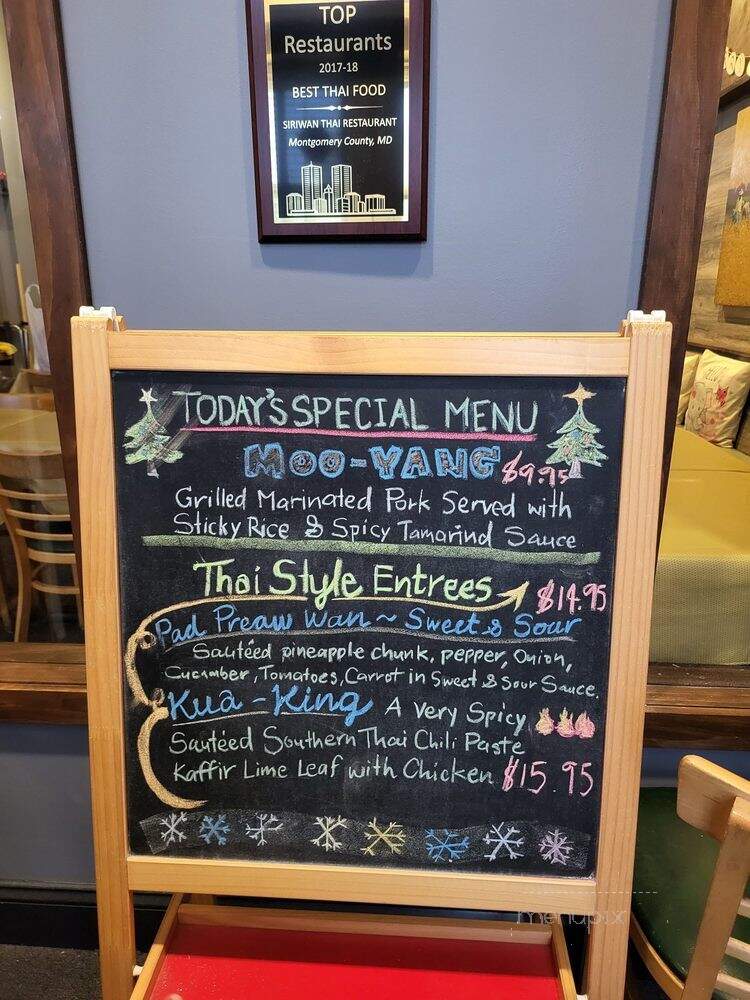 TOP
Restaurants
2017-18
BEST THAI FOOD
SIRIWAN THAI RESTAURANT
Montgomery County, MD
TODAY'S SPECIAL MENU
MOO-YANG $9.95
Grilled Marinated Pork Served with
Sticky Rice & Spicy Tamarind Sauce
Thai Style Entrees $14.95
Pad Preaw Wan ~ Sweet & Sour
Sautéed pineapple chunk, pepper, Onion,
Cucumber, Tomatoes, Carrot in Sweet & Sour Sauce.
Kua-King A Very Spicy
Sautéed Southern Thai Chili Paste
Kaffir Lime Leaf with Chicken $15.95
menupix